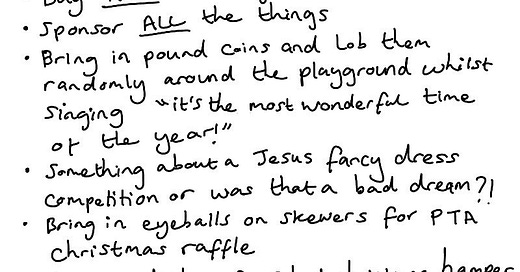 • Sponsor ALL the things
• Bring in pound coins and lob them
randomly around the playground whilst
singing "it's the most wonderful time
of the year!"
• Something about a Jesus fancy dress
competition or was that a bad dream?!
• Bring in eyeballs on skewers for PTA
christmas raffle
hamper